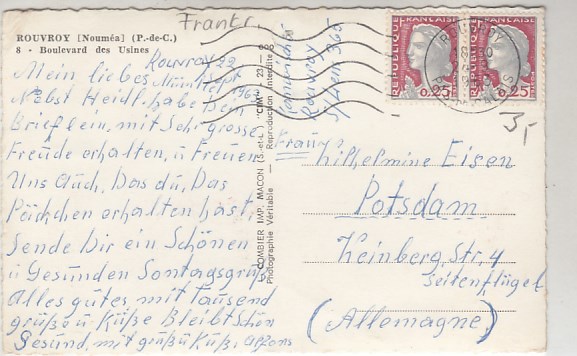 Frankr.
ROUVROY [Nouméa] (P.-de-C.)
8 - Boulevard des Usines
Rouvroy 22
Sept 1962
Mein liebes
Nebst Heidi. habe Dein
Brieflein, mit Sehr grosse
Freude erhalten, u Freuen
Uns Auch, Das du, Das
Päckchen erhalten hast,
Sende Dir ein Schönen
u Gesunden Sontagsgruß
Alles gutes mit Tausend
grüße u Küße Bleibt Schön
Gesund, mit grüß u Küß. Alfons
COMBIER IMP. MACON (S.-et-L.) "CIM"
Photographie Véritable - Reproduction Interdite
Rouvroy
REPUBLIQUE FRANÇAISE
0,25
REPUBLIQUE FRANÇAISE
0,25
3,-
Wilhelmine Eisen
Potsdam
Weinberg. Str. 4
Seitenflügel
(Allemagne)